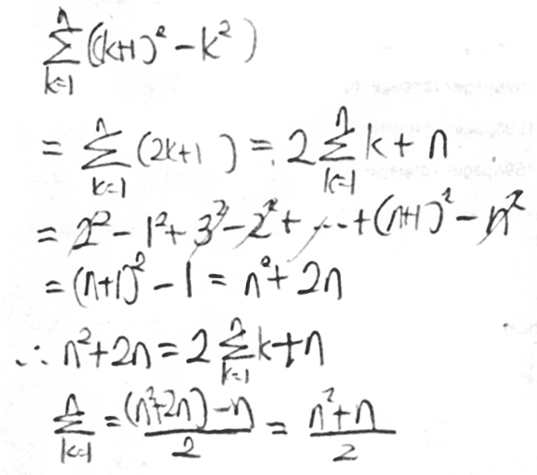 \sum_{k=1}^{n} ((k+1)^2 - k^2)
= \sum_{k=1}^{n} (2k+1) = 2\sum_{k=1}^{n} k + n
= 2^2 - 1^2 + 3^2 - 2^2 + \cdots + (n+1)^2 - n^2
= (n+1)^2 - 1 = n^2 + 2n
\therefore n^2 + 2n = 2\sum_{k=1}^{n} k + n
\sum_{k=1}^{n} = \frac{(n^2+2n) - n}{2} = \frac{n^2+n}{2}